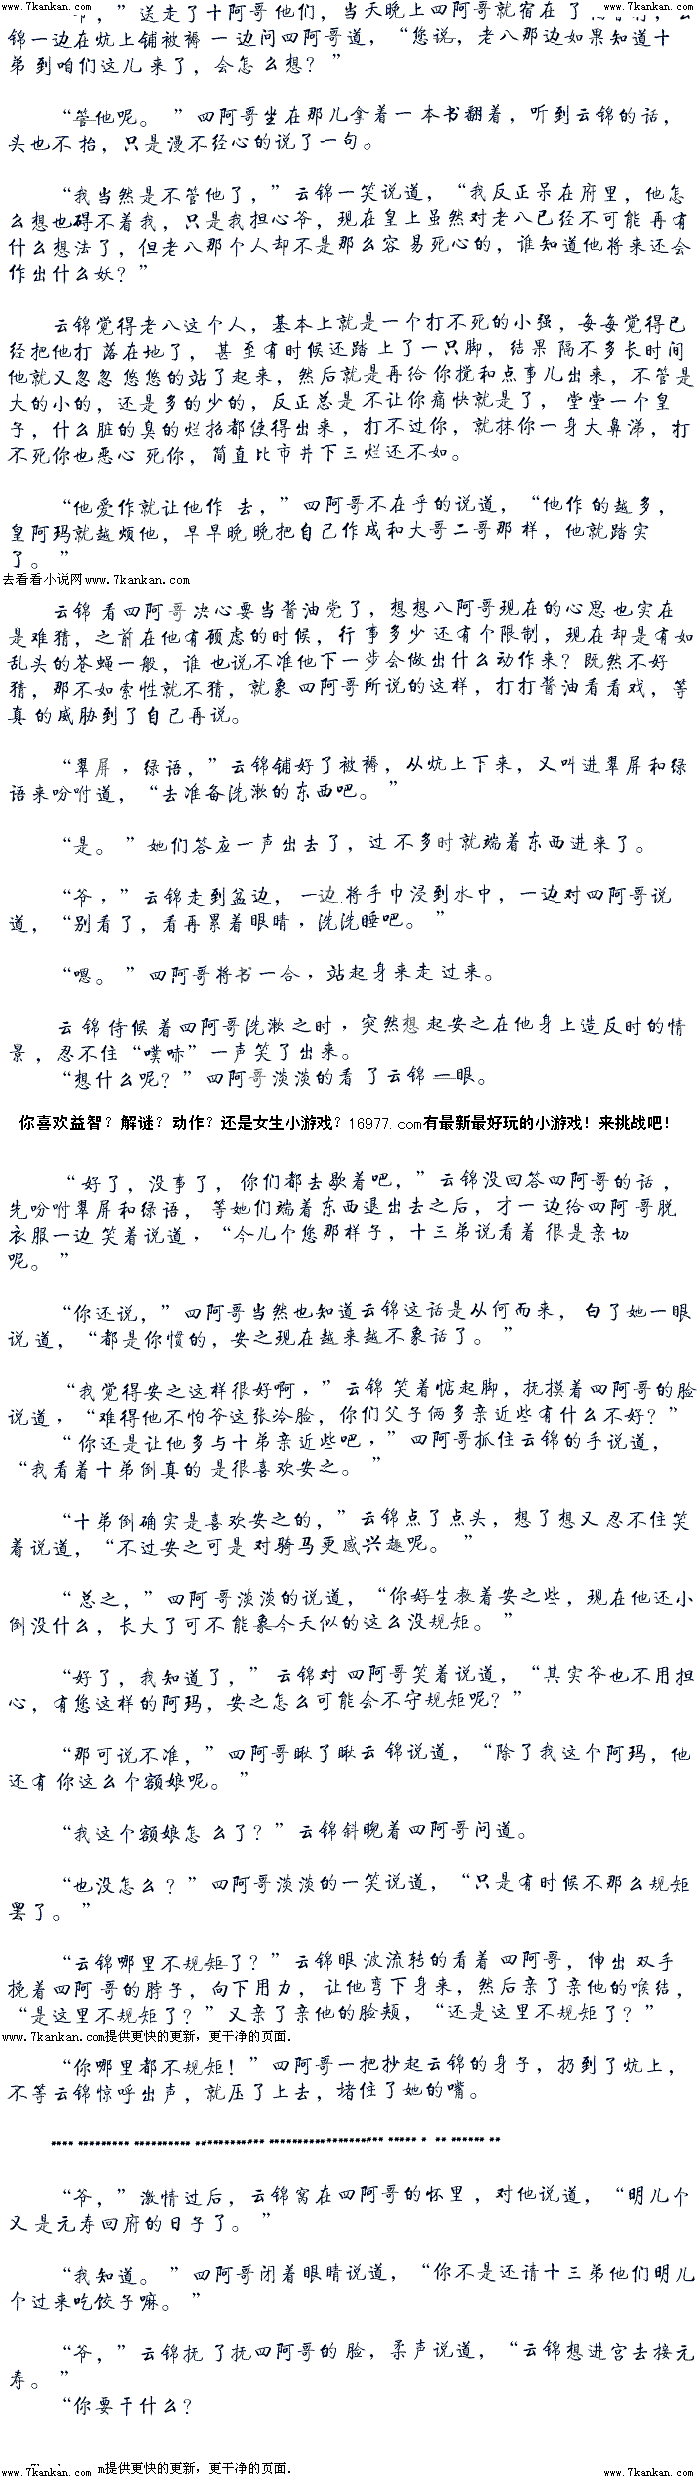 www.7kankan.com www.7kankan.com
，”送走了十阿哥他们，当天晚上四阿哥就宿在了
锦一边在炕上铺被褥一边问四阿哥道，“您说，老八那边如果知道十
弟到咱们这儿来了，会怎么想？”
“管他呢。”四阿哥坐在那儿拿着一本书翻着，听到云锦的话，
头也不抬，只是漫不经心的说了一句。
“我当然是不管他了，”云锦一笑说道，“我反正呆在府里，他怎
么想也碍不着我，只是我担心爷，现在皇上虽然对老八已经不可能再有
什么想法了，但老八那个人却不是那么容易死心的，谁知道他将来还会
作出什么妖？”
云锦觉得老八这个人，基本上就是一个打不死的小强，每每觉得已
经把他打落在地了，甚至有时候还踏上了一只脚，结果隔不多长时间
他就又忽忽悠悠的站了起来，然后就是再给你搅和点事儿出来，不管是
大的小的，还是多的少的，反正总是不让你痛快就是了，堂堂一个皇
子，什么脏的臭的烂招都使得出来，打不过你，就抹你一身大鼻涕，打
不死你也恶心死你，简直比市井下三烂还不如。
“他爱作就让他作去，”四阿哥不在乎的说道，“他作的越多，
皇阿玛就越烦他，早早晚晚把自己作成和大哥二哥那样，他就踏实
了。”
去看看小说网www.7kankan.com
云锦看四阿哥决心要当酱油党了，想想八阿哥现在的心思也实在
是难猜，之前在他有顾虑的时候，行事多少还有个限制，现在却是有如
乱头的苍蝇一般，谁也说不准他下一步会做出什么动作来？既然不好
猜，那不如索性就不猜，就象四阿哥所说的这样，打打酱油看看戏，等
真的威胁到了自己再说。
“翠屏，绿语，”云锦铺好了被褥，从炕上下来，又叫进翠屏和绿
语来吩咐道，“去准备洗漱的东西吧。”
“是。”她们答应一声出去了，过不多时就端着东西进来了。
“爷，”云锦走到盆边，一边将手巾浸到水中，一边对四阿哥说
道，“别看了，看再累着眼睛，洗洗睡吧。”
“嗯。”四阿哥将书一合，站起身来走过来。
云锦侍候着四阿哥洗漱之时，突然想起安之在他身上造反时的情
景，忍不住“噗哧”一声笑了出来。
“想什么呢？”四阿哥淡淡的看了云锦一眼。
你喜欢益智？解谜？动作？还是女生小游戏？16977.com有最新最好玩的小游戏！来挑战吧！
“好了，没事了，你们都去歇着吧，”云锦没回答四阿哥的话，
先吩咐翠屏和绿语，等她们端着东西退出去之后，才一边给四阿哥脱
衣服一边笑着说道，“今儿个您那样子，十三弟说看着很是亲切
呢。”
“你还说，”四阿哥当然也知道云锦这话是从何而来，白了她一眼
说道，“都是你惯的，安之现在越来越不象话了。”
“我觉得安之这样很好啊，”云锦笑着惦起脚，抚摸着四阿哥的脸
说道，“难得他不怕爷这张冷脸，你们父子俩多亲近些有什么不好？”
“你还是让他多与十弟亲近些吧，”四阿哥抓住云锦的手说道，
“我看着十弟倒真的是很喜欢安之。”
“十弟倒确实是喜欢安之的，”云锦点了点头，想了想又忍不住笑
着说道，“不过安之可是对骑马更感兴趣呢。”
“总之，”四阿哥淡淡的说道，“你好生教着安之些，现在他还小
倒没什么，长大了可不能象今天似的这么没规矩。”
“好了，我知道了，”云锦对四阿哥笑着说道，“其实爷也不用担
心，有您这样的阿玛，安之怎么可能会不守规矩呢？”
“那可说不准，”四阿哥瞅了瞅云锦说道，“除了我这个阿玛，他
还有你这么个额娘呢。”
“我这个额娘怎么了？”云锦斜睨着四阿哥问道。
“也没怎么？”四阿哥淡淡的一笑说道，“只是有时候不那么规矩
罢了。”
“云锦哪里不规矩了？”云锦眼波流转的看着四阿哥，伸出双手
挽着四阿哥的脖子，向下用力，让他弯下身来，然后亲了亲他的喉结，
“是这里不规矩了？”又亲了亲他的脸颊，“还是这里不规矩了？”
www.7kankan.com提供更快的更新，更干净的页面.
“你哪里都不规矩！”四阿哥一把抄起云锦的身子，扔到了炕上，
不等云锦惊呼出声，就压了上去，堵住了她的嘴。
**** ********* ********** ************ ******************** ***** * ** ****** **
“爷，”激情过后，云锦窝在四阿哥的怀里，对他说道，“明儿个
又是元寿回府的日子了。”
“我知道。”四阿哥闭着眼睛说道，“你不是还请十三弟他们明儿
个过来吃饺子嘛。”
“爷，”云锦抚了抚四阿哥的脸，柔声说道，“云锦想进宫去接元
寿。”
“你要干什么？
m提供更快的更新，更干净的页面.
www.7kankan.com www.7kankan.com